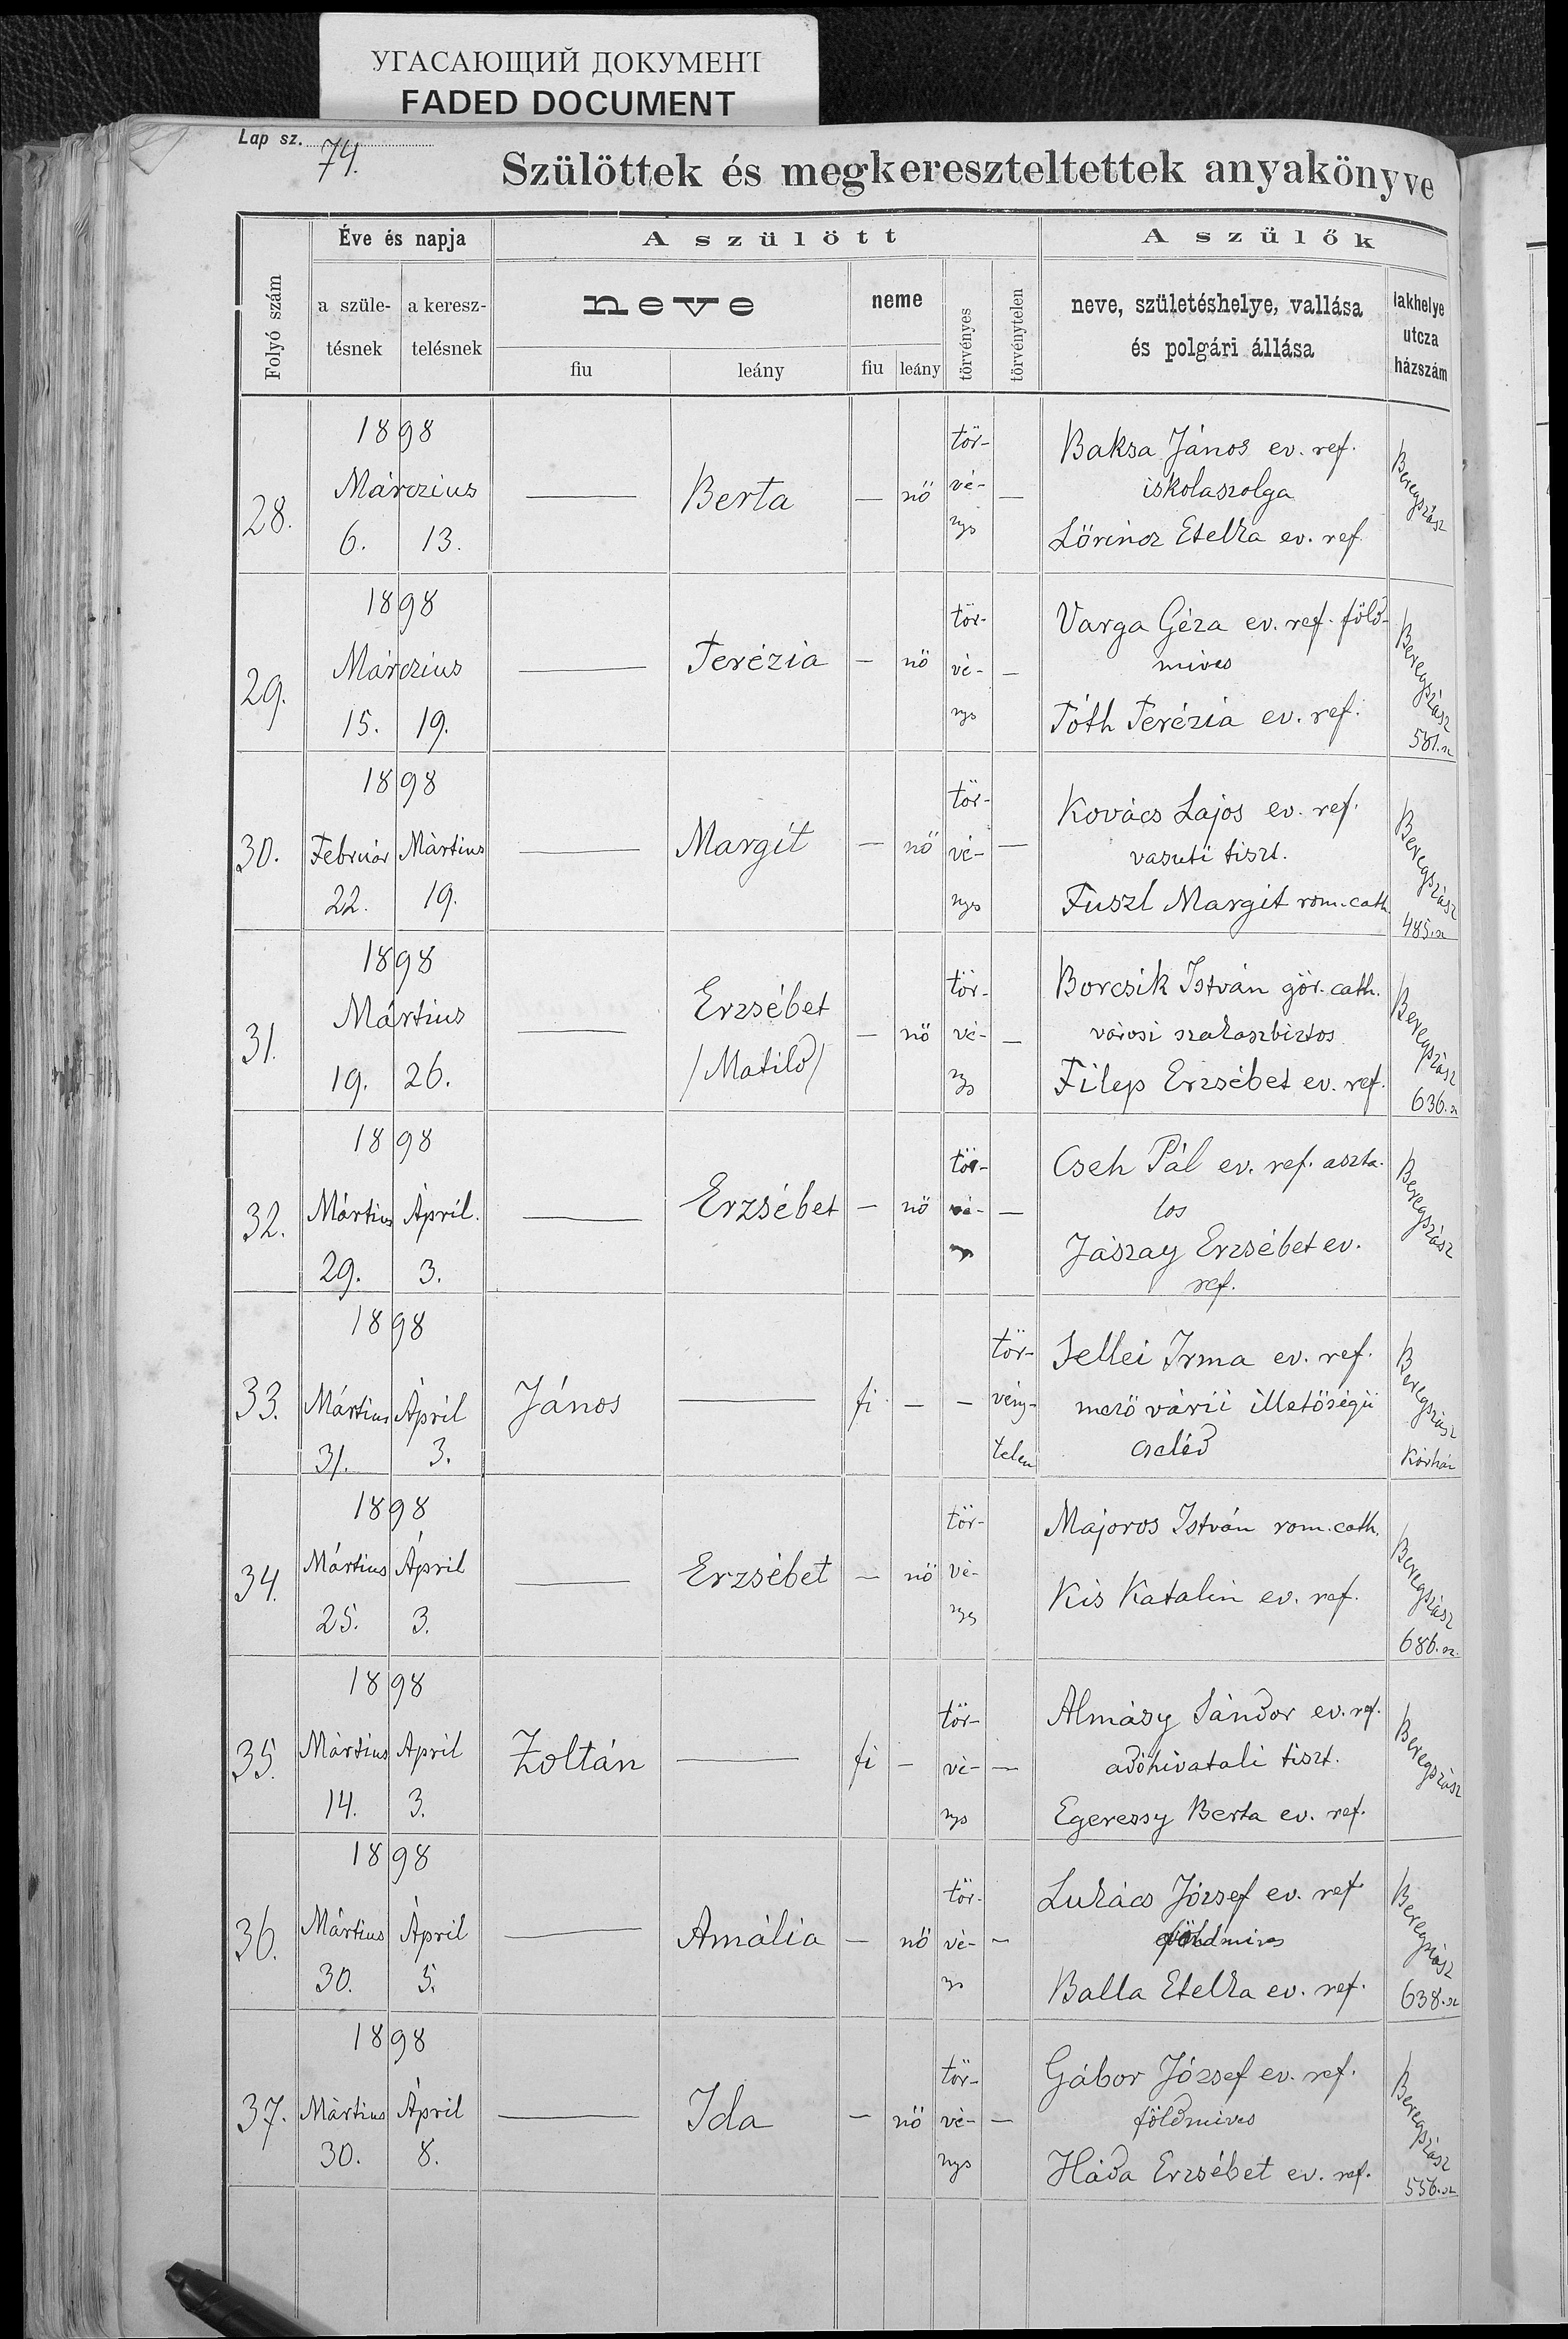 УГАСАЮЩИЙ ДОКУМЕНТ
FADED DOCUMENT
Lap sz. 74.
Szülöttek és megkereszteltettek anyakönyve
Folyó szám
Éve és napja
a szüle-
tésnek
a keresz-
telésnek
A szülött
neve
fiu
leány
neme
fiu
leány
törvényes
törvénytelen
A szülők
neve, születéshelye, vallása
és polgári állása
lakhelye
utcza
házszám
28.
1898
Márczius
6. 13.
— Berta — nö
tör-
vé-
nys
—
Baksa János ev. ref.
iskolaszolga
Lörincz Etelka ev. ref.
Beregszász
29.
1898
Márczius
15. 19.
— Terézia — nö
tör-
vé-
nys
—
Varga Géza ev. ref. föld-
mives
Tóth Terézia ev. ref.
Beregszász
581. sz
30.
1898
Február Mártius
22. 19.
— Margit — nö
tör-
vé-
nys
—
Kovács Lajos ev. ref.
vasuti tiszt.
Fuszl Margit rom. cath.
Beregszász
485. sz
31.
1898
Mártius
19. 26.
— Erzsébet
/Matild/
— nö
tör-
vé-
nys
—
Borcsik István gör. cath.
városi szakaszbiztos
Filep Erzsébet ev. ref.
Beregszász
636. sz
32.
1898
Mártius Ápril.
29. 3.
— Erzsébet — nö
tör-
vé-
nys
—
Cseh Pál ev. ref. aszta-
los
Jászay Erzsébet ev.
ref.
Beregszász
33.
1898
Mártius Ápril
31. 3.
János — fi — —
tör-
vény-
telen
Sellei Irma ev. ref.
mezővárii illetőségü
cseléd
Beregszász
Kórház
34.
1898
Mártius Ápril
25. 3.
— Erzsébet — nö
tör-
vé-
nys
Majoros István rom. cath.
Kis Katalin ev. ref.
Beregszász
686. sz.
35.
1898
Mártius April
14. 3.
Zoltán — fi —
tör-
vé-
nys
—
Almásy Sándor ev. ref.
adóhivatali tiszt.
Egeressy Berta ev. ref.
Beregszász
36.
1898
Mártius Ápril
30. 5.
— Amália — nö
tör-
vé-
nys
—
Lukács József ev. ref.
földmives
Balla Etelka ev. ref.
Beregszász
638. sz
37.
1898
Mártius Ápril
30. 8.
— Ida — nö
tör-
vé-
nys
—
Gábor József ev. ref.
földmives
Háda Erzsébet ev. ref.
Beregszász
556. sz